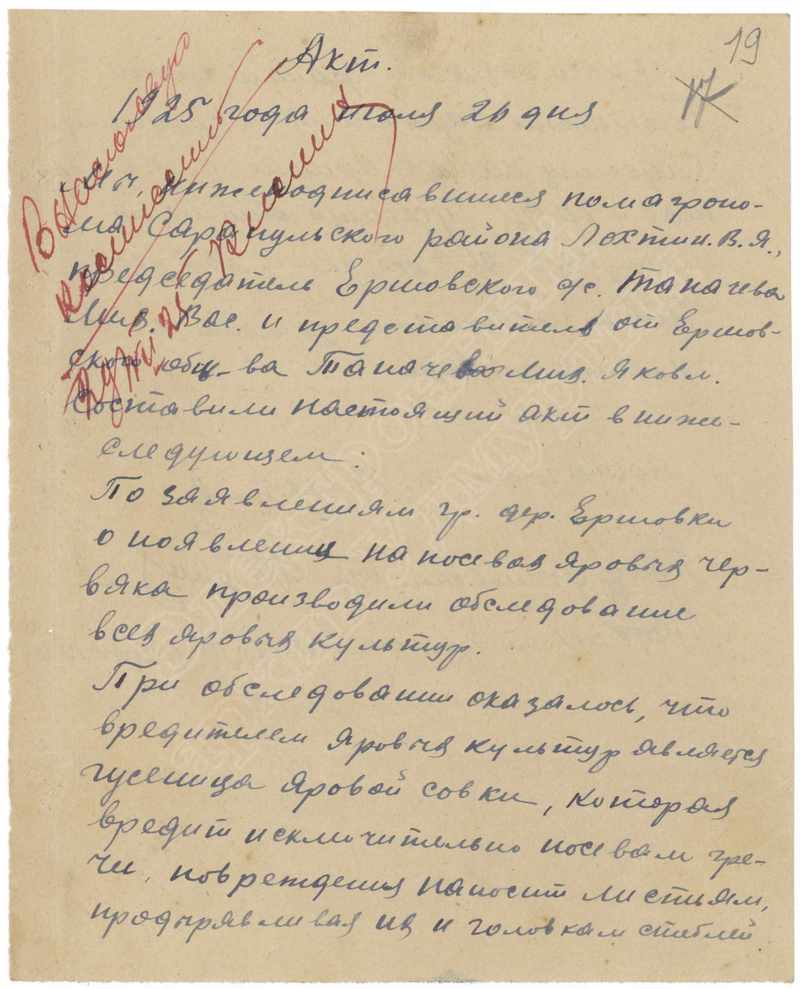 19
17
Акт.
1925 года июля 26 дня
Мы, нижеподписавшиеся помагроно-
ма Сарапульского района Лехтин. В. Я.,
председатель Ершовского с/с. Тапачева
Мих. Вас. и представитель от Ершов-
ского общ-ва Тапачев Миш. Яковл.
Составили настоящий акт в ниже-
следующем:
По заявлениям гр. дер. Ершовки
о появлении на посевах яровых чер-
вяка производили обследование
всех яровых культур.
При обследовании оказалось, что
вредителем яровых культур является
гусеница яровой совки, которая
вредит исключительно посевам гре-
чи, повреждения наносит листьям,
продырявливая их и головкам стеблей